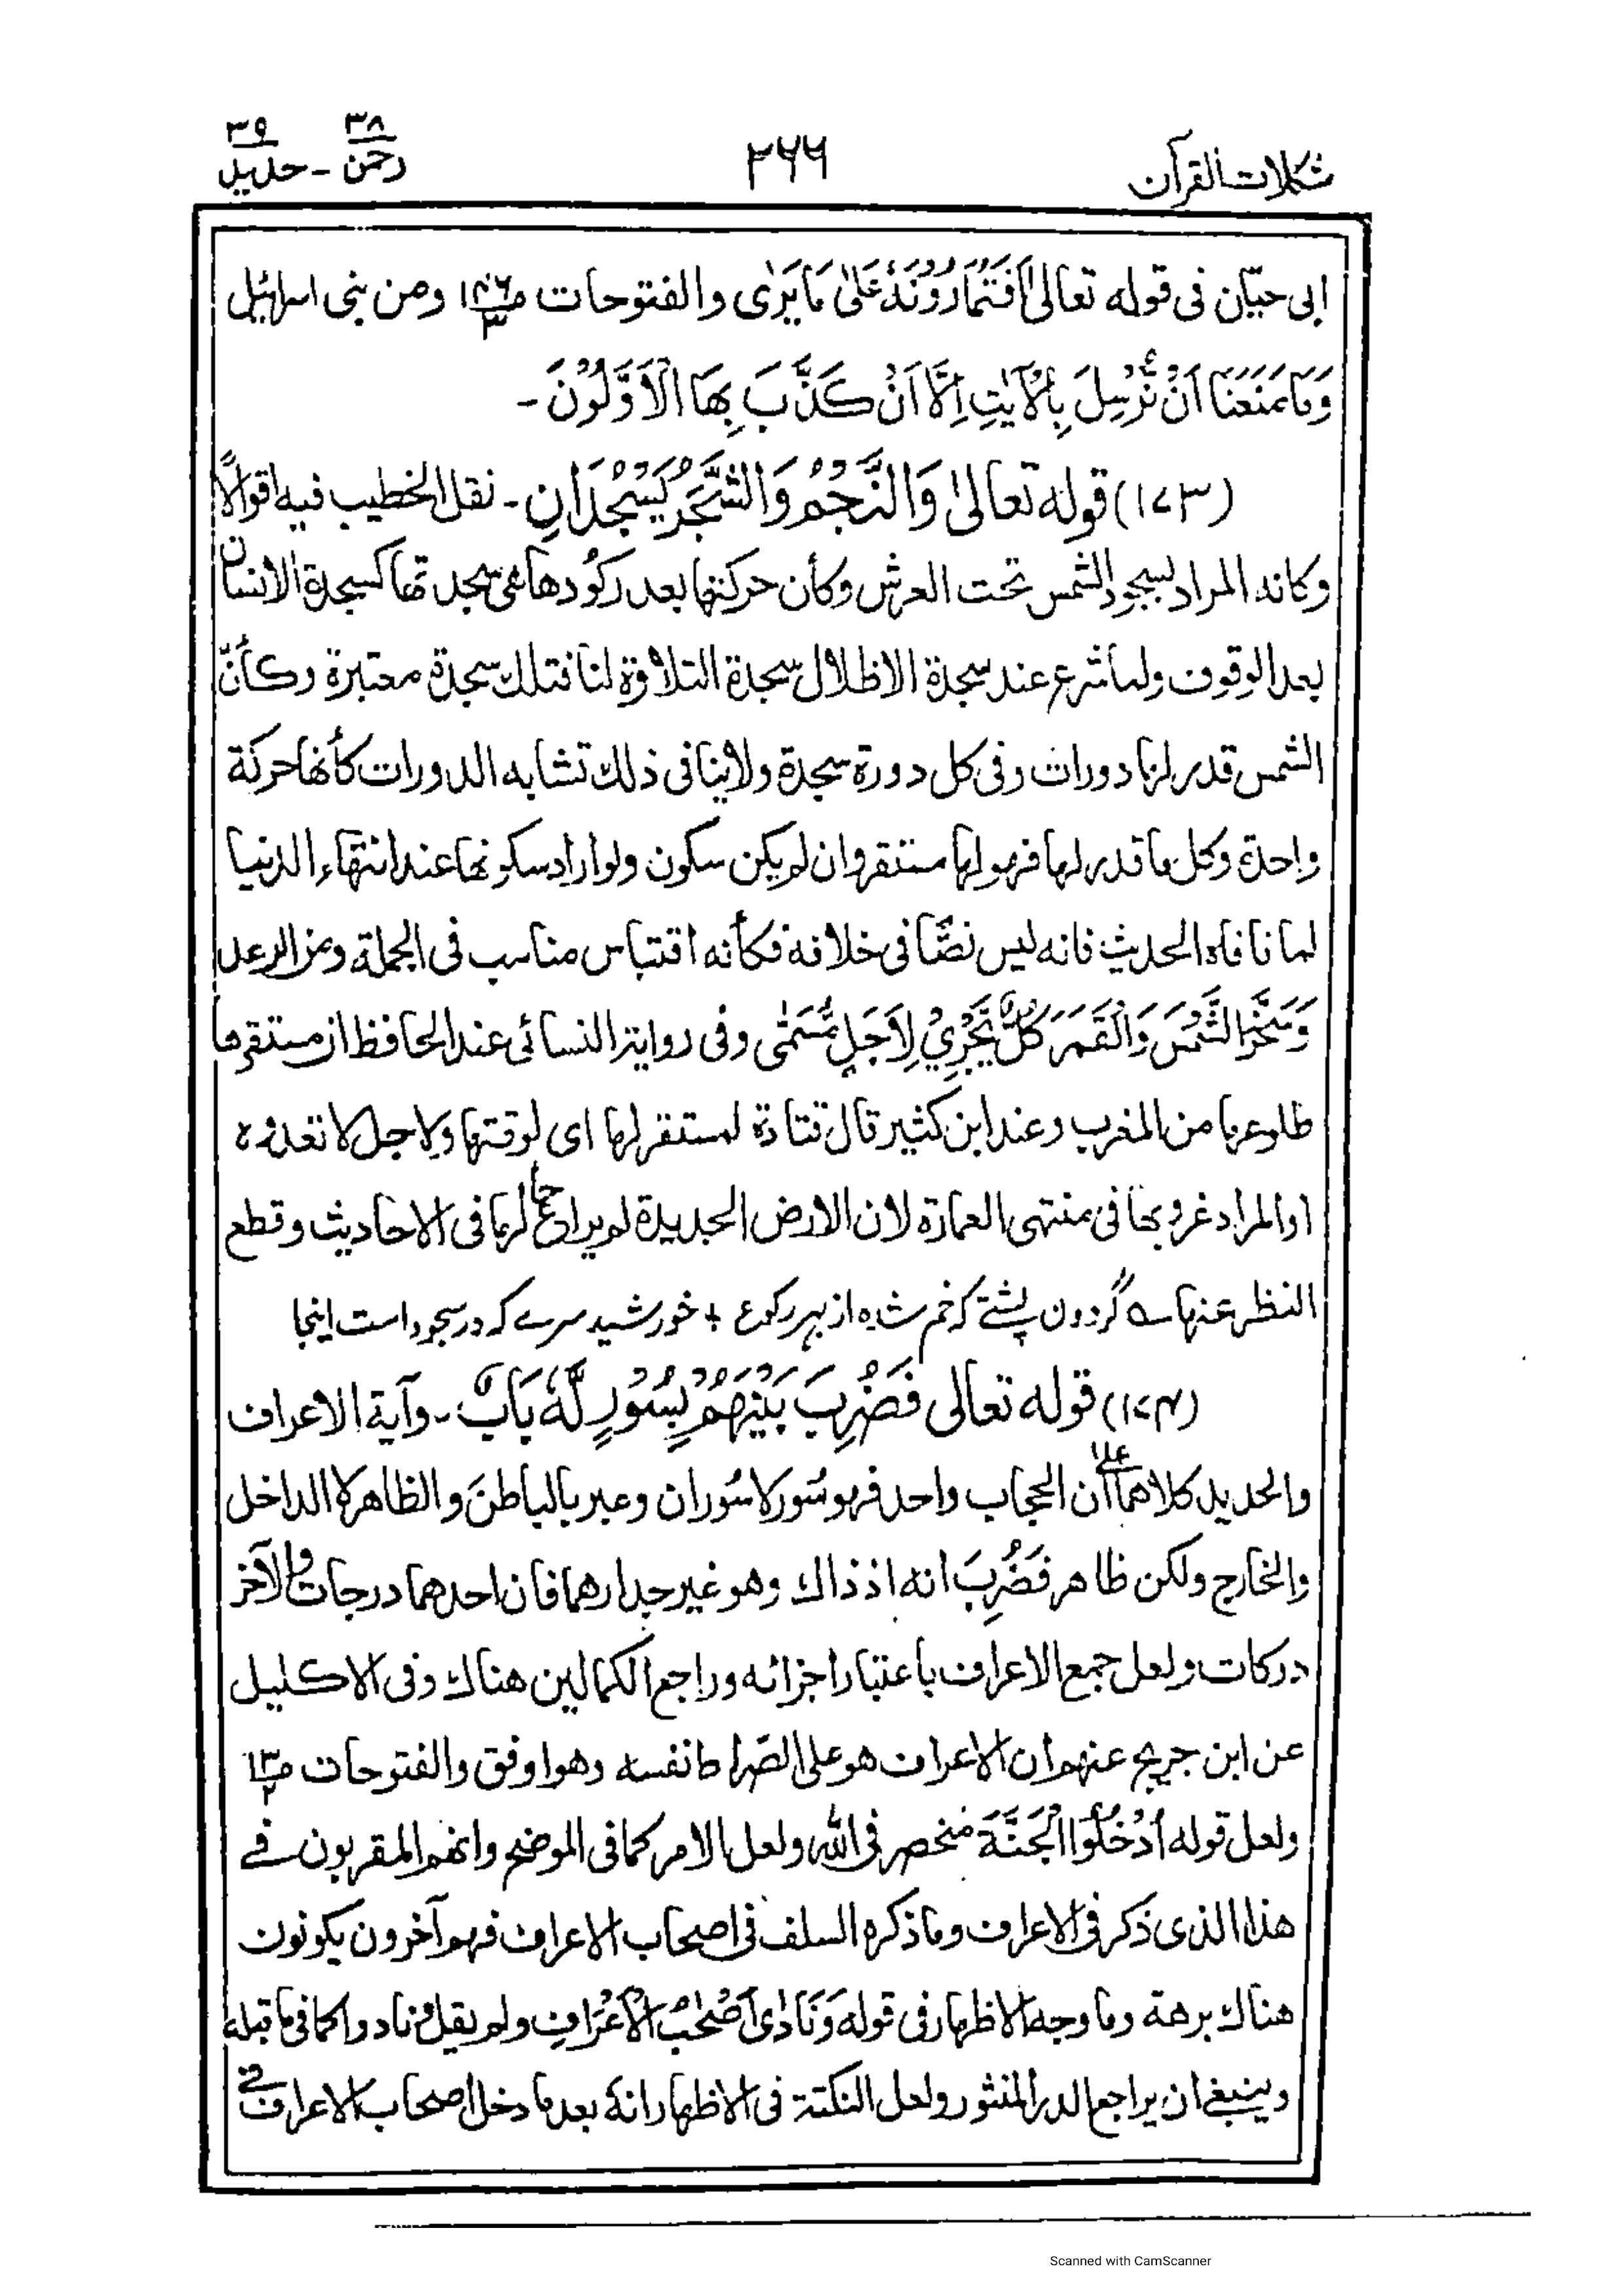 مشكلات القرآن
٢٦٦
٣٨ رحمن - ٣٩ حديد
ابى حيّان فى قوله تعالىٰ اَفَتُمَارُوْنَهٗ عَلىٰ مَا يَرٰى والفتوحات ومن بنى اسرائيل
وَمَا مَنَعَنَا اَنْ نُّرْسِلَ بِالْاٰيٰتِ اِلَّا اَنْ كَذَّبَ بِهَا الْاَوَّلُوْنَ -
(١٧٣) قوله تعالىٰ وَالنَّجْمُ وَالشَّجَرُ يَسْجُدَانِ - نقل الخطيب فيه اقوالاً
وكانه المراد بسجود الشمس تحت العرش وكأن حركتها بعد ركودها هى سجدتها كسجدة الانسان
بعد الوقوف ولما شرع عند سجدة الاظلال سجدة التلاوة لنا فتلك سجدة معتبرة وكأنّ
الشمس قدر لها دورات وفى كل دورة سجدة ولا ينافى ذلك تشابه الدورات كأنها حركة
واحدة وكل ما قدر لها فهو لها مستقر وان لم يكن سكون ولو اراد سكونها عند انتهاء الدنيا
لما نافاه الحديث فانه ليس نصًّا فى خلافه فكأنه اقتباس مناسب فى الجملة ومن الرعد
وَسَخَّرَ الشَّمْسَ وَالْقَمَرَ كُلٌّ يَّجْرِيْ لِاَجَلٍ مُّسَمًّى وفى رواية النسائى عند الحافظ ان مستقرها
طلوعها من المغرب وعند ابن كثير قال قتادة لمستقر لها اى لوقتها ولاجل لا تعدوه
او المراد غروبها فى منتهى العمارة لان الارض الجديدة لم يراع حالها فى الاحاديث وقطع
النظر عنها ؎ گردون پشتے كه خم شده از بهر ركوع + خورشيد سرے كه در سجود است اينجا
(١٧٤) قوله تعالى فَضُرِبَ بَيْنَهُمْ بِسُوْرٍ لَّهٗ بَابٌ - وآية الاعراف
والحديد كلاهما على أن الحجاب واحد فهو سُور لا سُوران وعبر بالباطن والظاهر لا الداخل
والخارج ولكن ظاهر فَضُرِبَ انه اذ ذاك وهو غير جدارهما فان احدهما درجات والآخر
دركات ولعل جمع الاعراف باعتبار اجزائه وراجع الكمالين هناك وفى الاكليل
عن ابن جريج عنهم ان الاعراف هو على الصراط نفسه وهو اوفق والفتوحات
ولعل قوله اُدْخُلُوا الْجَنَّةَ منحصر فى الله ولعل الامر كما فى الموضح وانهم المقربون فے
هذا الذى ذكر فى الاعراف وما ذكره السلف فى اصحاب الاعراف فهم آخرون يكونون
هناك برهة وما وجه الاظهار فى قوله وَنَادٰى اَصْحٰبُ الْاَعْرَافِ ولم يقل ونادوا كما فى ما قبله
وينبغى ان يراجع الدر المنثور ولعل النكتة فى الاظهار انه بعد ما دخل اصحاب الاعراف فے
Scanned with CamScanner